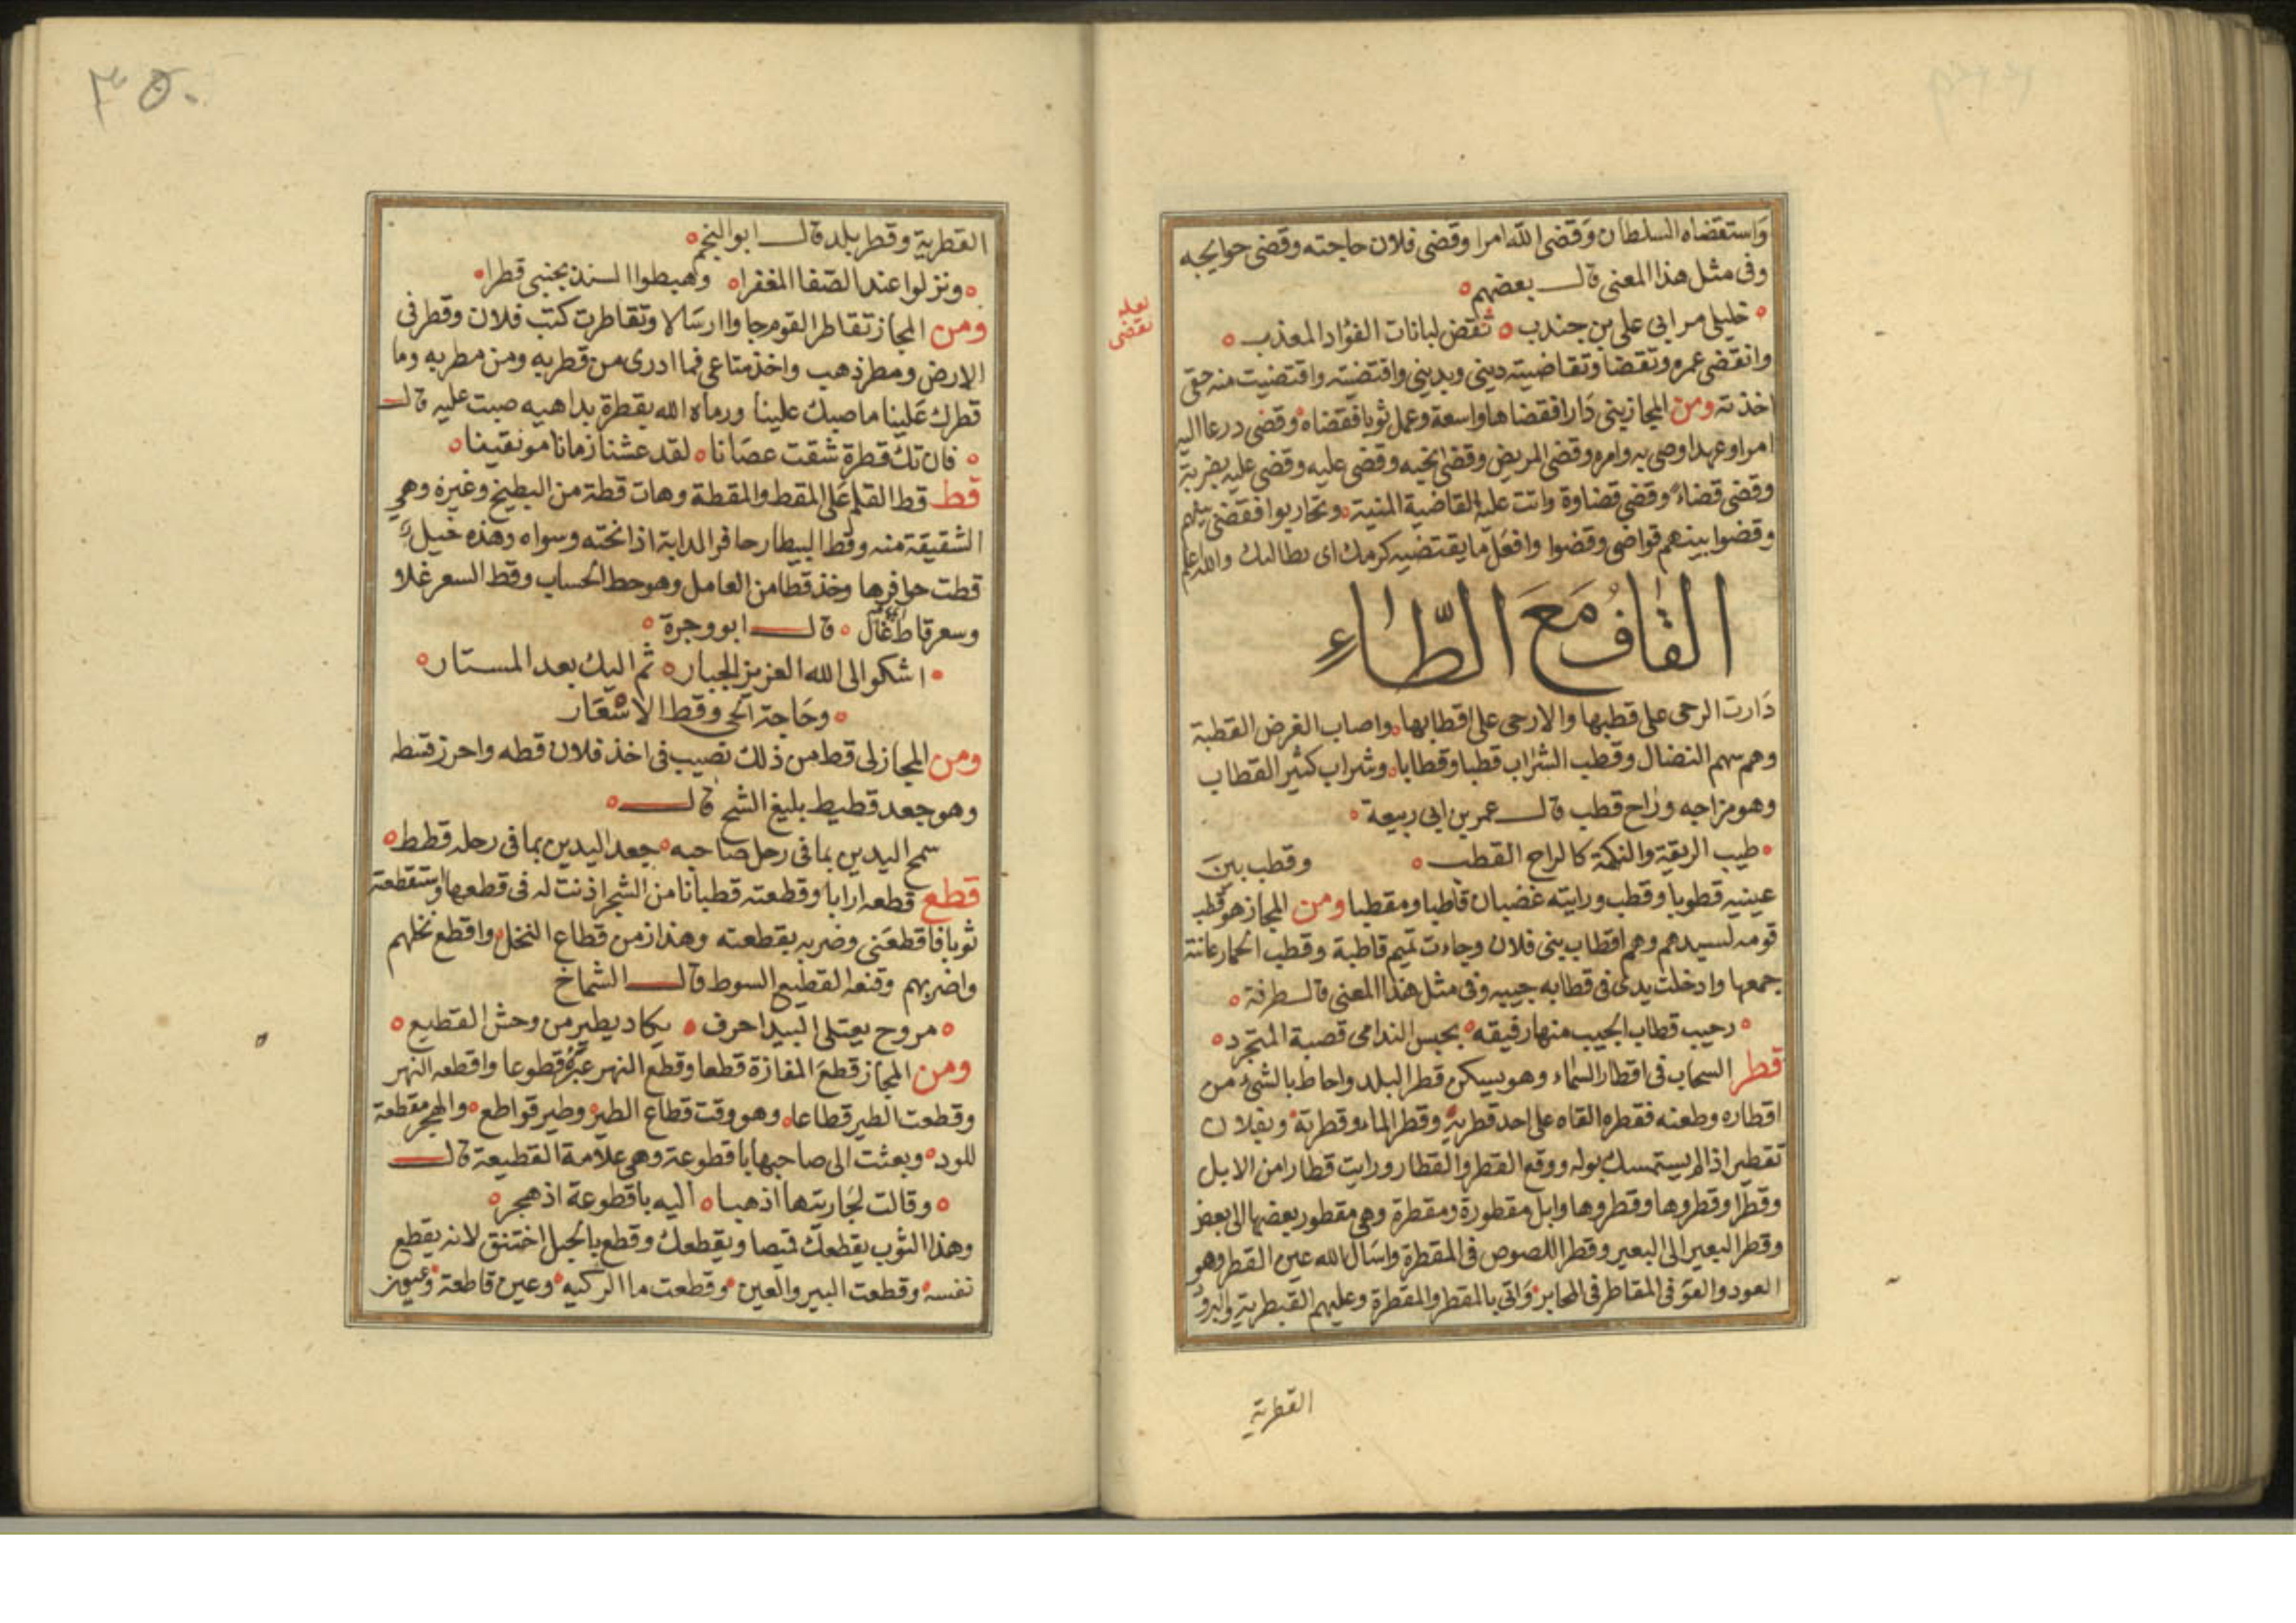 واستقضاه السلطان وقضى الله امرا وقضى فلان حاجته وقضى حوايجه
وفى مثل هذا المعنى قال بعضهم
خليلى مرا بى على بن جندب نقض لبانات الفؤاد المعذب
لعله
نقضى
وانقضى عمرو وتقضا وتقاضيته دينى وبدينى واقتضيته واقتضيت منه حقى
اخذته ومن المجاز بنى دارا فقضاها واسعة وعمل ثوبا فقضاه وقضى درعا اليه
امرا وعهدا وصى به وامره وقضى المريض وقضى نحبه وقضى عليه وقضى عليه بضربة
وقضى قضاء وقضى قضاوة واتت عليه القاضية المنية وتحاربوا فقضى بينهم
وقضوا بينهم قواضى وقضوا وافعل ما يقتضيه كرمك اى يطالبك والله اعلم
القاف مع الطاء
دارت الرحى على قطبها والارحى على اقطابها واصاب الغرض القطبة
وهم سهم النضال وقطب الشراب قطبا وقطابا وشراب كثير القطاب
وهو مزاجه وراح قطب قال عمر بن ابى ربيعة
طيب الريقة والنكهة كالراح القطب وقطب بين
عينيه قطوبا وقطب ورايته غضبان قاطبا ومقطبا ومن المجاز هو قطب
قومه لسيدهم وهم اقطاب بنى فلان وجاءت تميم قاطبة وقطب الحمار عانته
جمعها وادخلت يدى فى قطابه جيبه وفى مثل هذا المعنى قال طرفة
رحيب قطاب الجيب منها رفيقه بجس الندامى قصبة المتجرد
قطر السحاب فى اقطار السماء وهو يسكن قطر البلد واحاط بالشئ من
اقطاره وطعنه فقطره القاه على احد قطريه وقطر الماء وقطرته وبفلان
تقطير اذا لم يستمسك بوله ووقع القطر والقطار ورايت قطارا من الابل
وقطرا وقطروها وقطروها وابل مقطورة ومقطرة وهى مقطور بعضها الى بعض
وقطر البعير الى البعير وقطر اللصوص فى المقطرة واسال الله عين القطر وهو
العود والقو فى المقاطر فى المجابر واتى بالمقطر والمقطرة وعليهم القبطرية والبرود
القطرية
٣٥٠
القطرية وقطر بلد قال ابو النجم
ونزلوا عند الصفا المغفرا وهبطوا السند بجنبى قطرا
ومن المجاز تقاطر القوم جاوا ارسالا وتقاطرت كتب فلان وقطر فى
الارض ومطر ذهب واخذ متاعى فما ادرى من قطر به ومن مطر به وما
قطرك علينا ما صبك علينا ورماه الله بقطرة بداهيه صبت عليه قال
فان تك قطرة شقت عصانا لقد عشنا زمانا مونقينا
قط قط القلم على المقط والمقطة وهات قطة من البطيخ وغيره وهى
الشقيقة منه وقط البيطار حافر الدابة اذا نحته وسواه وهذه خيل
قطت حوافرها وخذ قطا من العامل وهو حط الحساب وقط السعر غلا
وسعر قاط غال قال ابو وجزة
اشكو الى الله العزيز الجبار ثم اليك بعد المستار
وحاجة الحى وقط الاشعار
ومن المجاز لى قط من ذلك نصيب فى اخذ فلان قطه واحرز قسطه
وهو جعد قطيط بليغ الشح قال
سمح اليدين بما فى رحل صاحبه جعد اليدين بما فى رحله قطط
قطع قطعه ارابا وقطعته قطبانا من الشجر اذنت له فى قطعها واستقطعته
ثوبا فاقطعنى وضربه بقطعته وهذا زمن قطاع النخل واقطع نخلهم
واضربهم وقنعه القطيع السوط قال الشماخ
مروح يعتلى البيدا حرف يكاد يطير من وحش القطيع
ومن المجاز قطع المفازة قطعا وقطع النهر عبره قطوعا واقطعه النهر
وقطعت الطير قطاعا وهو وقت قطاع الطير وطير قواطع والهجر مقطعة
للود وبعثت الى صاحبها باقطوعة وهى علامة القطيعة قال
وقالت لجاريتها اذهبا اليه باقطوعة اذ هجر
وهذا الثوب يقطعك قميصا ويقطعك وقطع بالحبل اختنق لانه يقطع
نفسه وقطعت البير والعين وقطعت ما الركيه وعين قاطعة وعيون